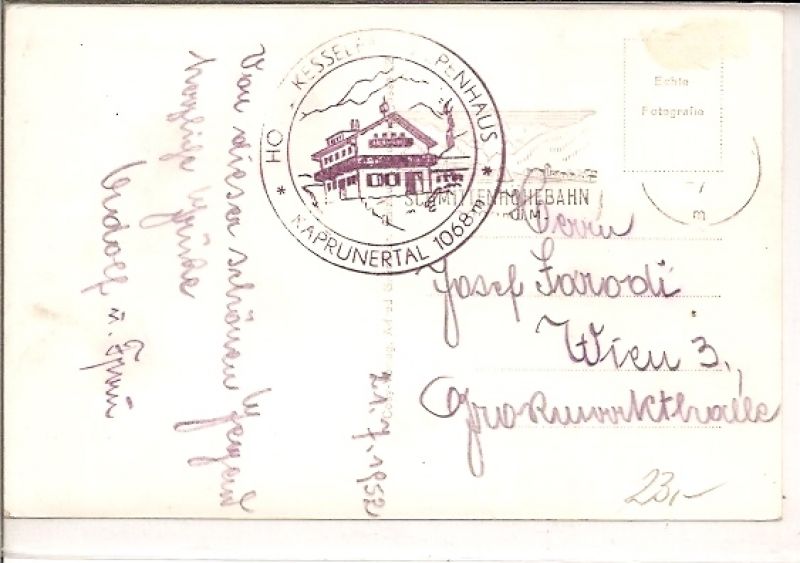 Von dieser schönen Gegend
herzliche Grüße
Rudolf u.
21.7.1952
HO KESSELF PENHAUS
* KAPRUNERTAL 1068m *
SCHMITTENHÖHEBAHN
Echte
Fotografie
Herrn
Josef Farodi
Wien 3.,
Großmarkthalle
23,-